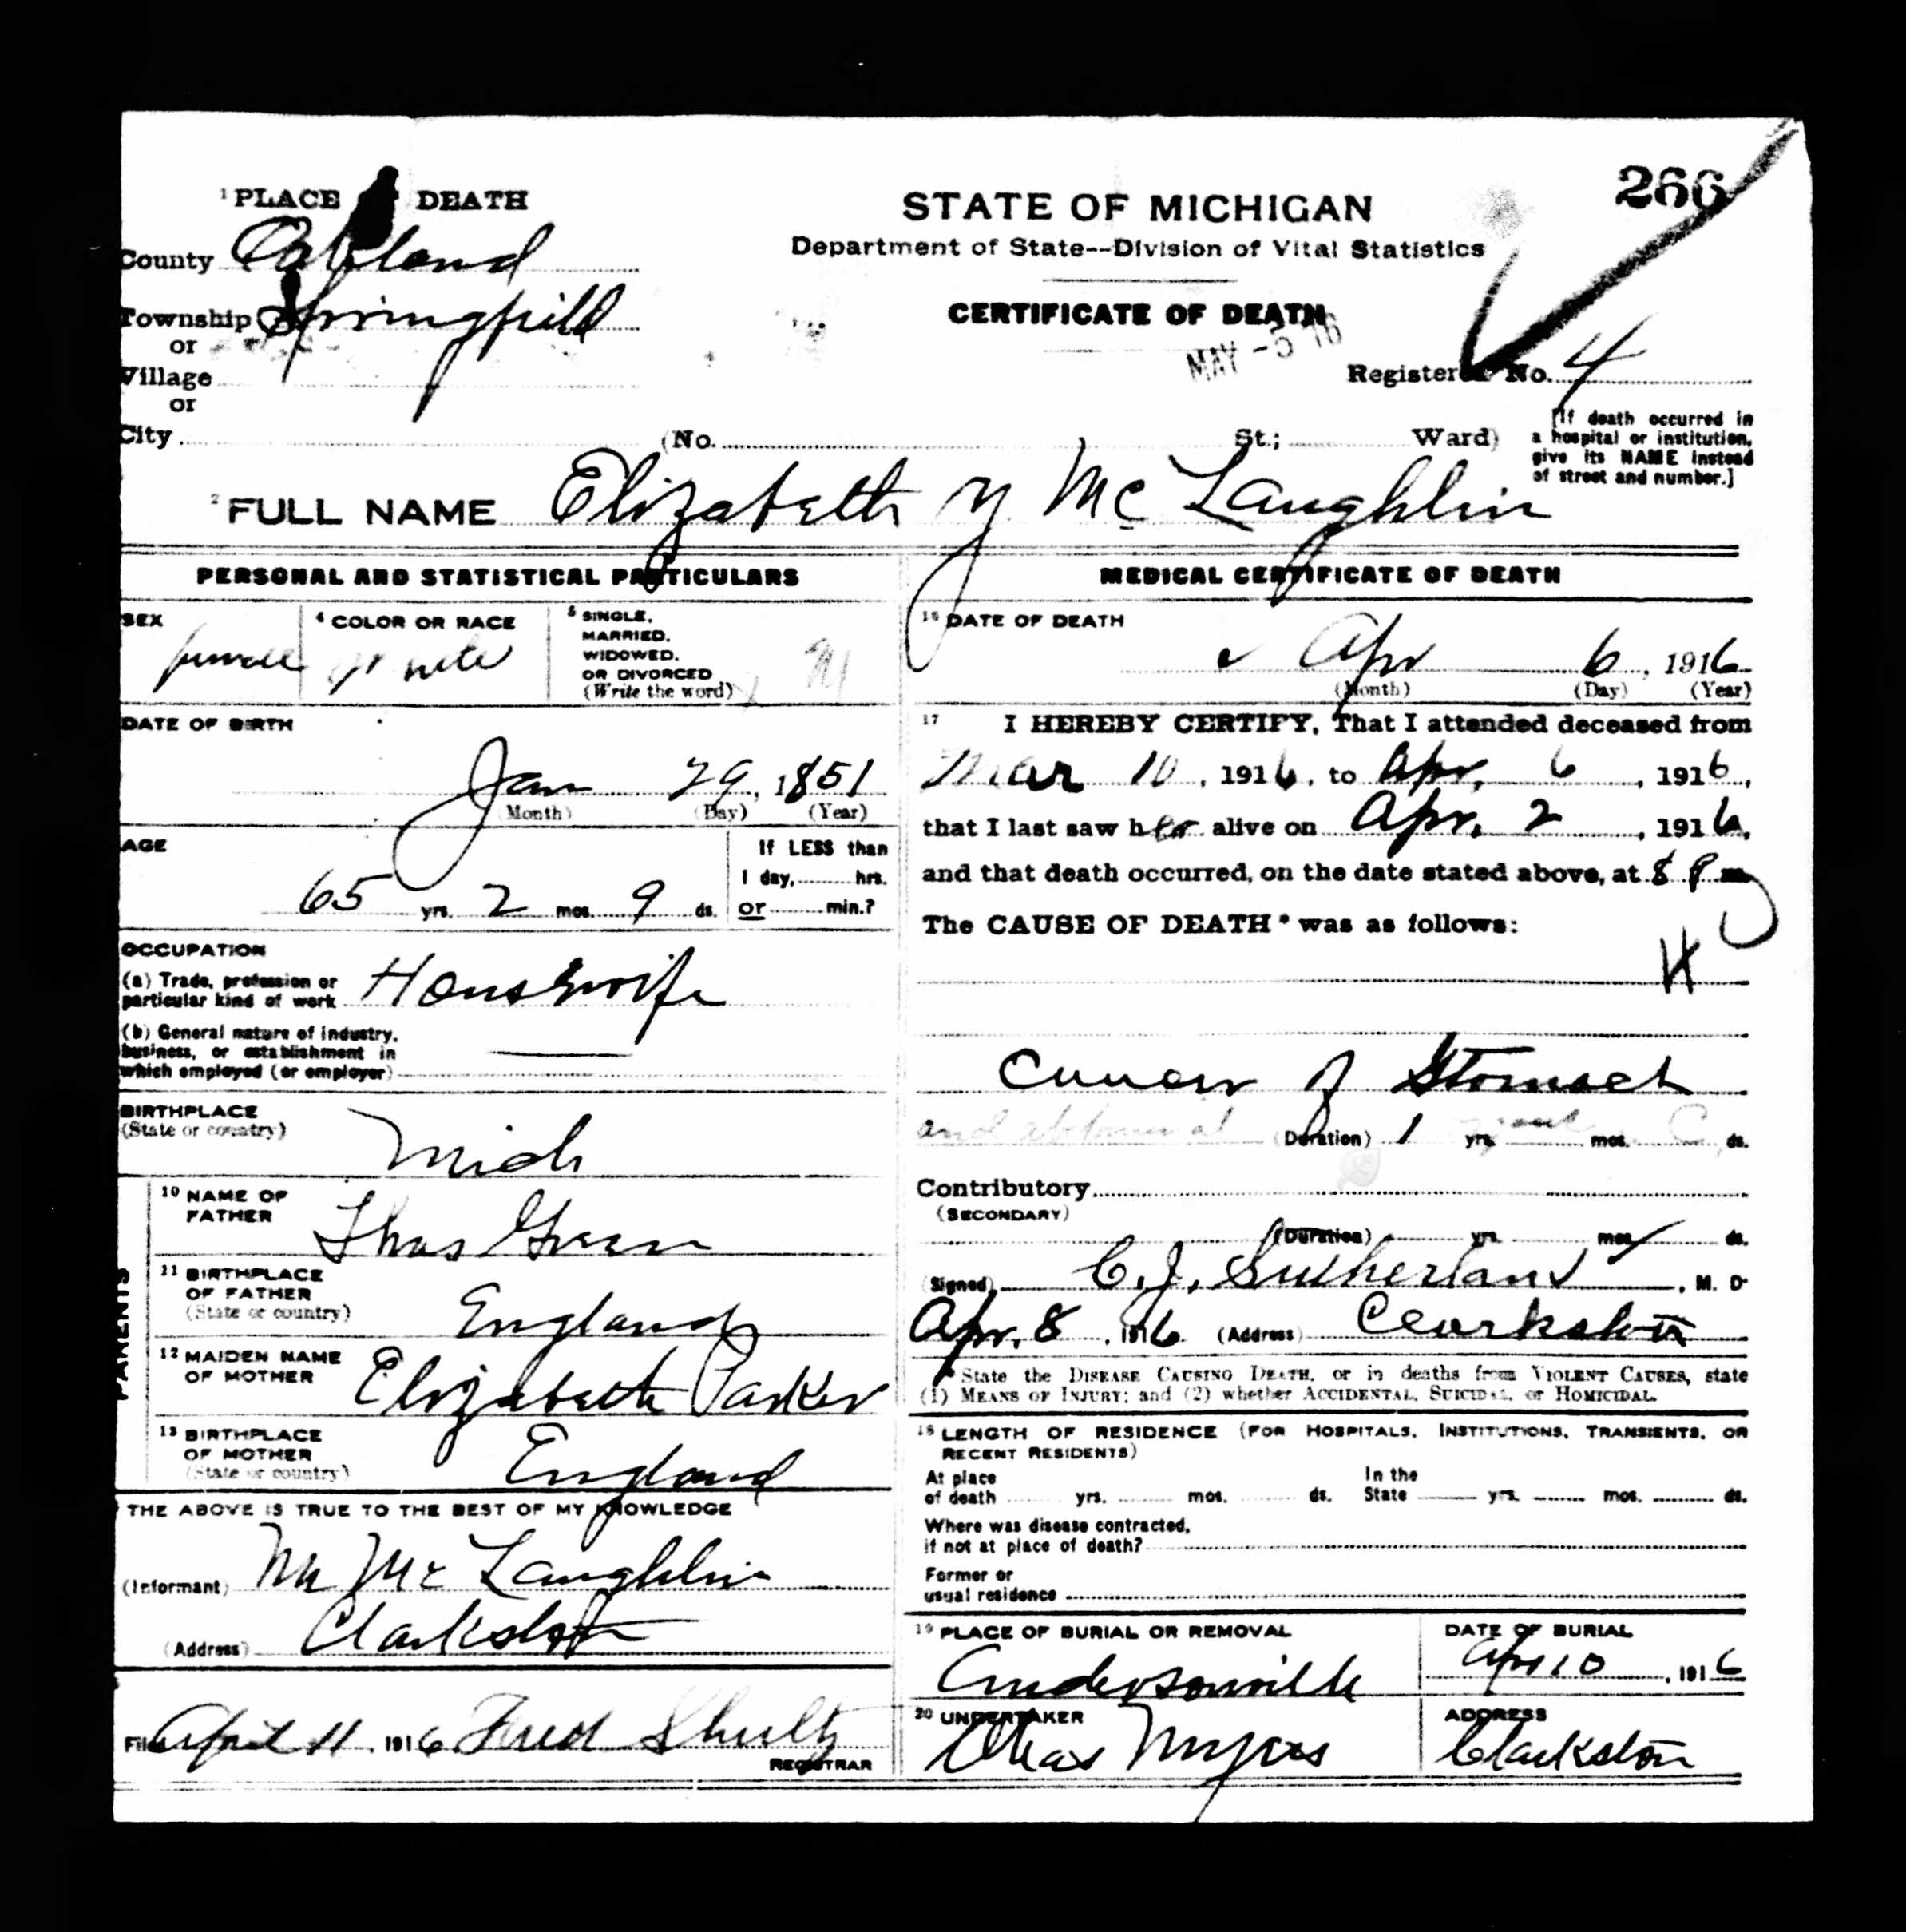 266
1 PLACE DEATH
STATE OF MICHIGAN
Department of State--Division of Vital Statistics
County Oakland
CERTIFICATE OF DEATH
Township Springfield
MAY -5 16
or
Village
Registered No. 4
or
City (No. St.; Ward)
[If death occurred in
a hospital or institution,
give its NAME instead
of street and number.]
2 FULL NAME Elizabeth Y Mc Laughlin
PERSONAL AND STATISTICAL PARTICULARS
SEX
female
4 COLOR OR RACE
White
5 SINGLE,
MARRIED,
WIDOWED,
OR DIVORCED
(Write the word)
M
DATE OF BIRTH
Jan 29, 1851
(Month) (Day) (Year)
AGE
65 yrs. 2 mos. 9 ds.
If LESS than
1 day, hrs.
or min.?
OCCUPATION
(a) Trade, profession or
particular kind of work Housewife
(b) General nature of industry,
business, or establishment in
which employed (or employer)
BIRTHPLACE
(State or country)
Mich
PARENTS
10 NAME OF
FATHER
Thos Green
11 BIRTHPLACE
OF FATHER
(State or country)
England
12 MAIDEN NAME
OF MOTHER
Elizabeth Parker
13 BIRTHPLACE
OF MOTHER
(State or country)
England
THE ABOVE IS TRUE TO THE BEST OF MY KNOWLEDGE
(Informant) Mc Laughlin
(Address) Clarkston
Filed April 11, 1916 Fred Shultz
REGISTRAR
MEDICAL CERTIFICATE OF DEATH
16 DATE OF DEATH
Apr 6, 1916
(Month) (Day) (Year)
17 I HEREBY CERTIFY, That I attended deceased from
Mar 10, 1916, to Apr. 6, 1916,
that I last saw her alive on Apr. 2, 1916,
and that death occurred, on the date stated above, at 8 P m
The CAUSE OF DEATH* was as follows:
Cancer of Stomach
and abdominal (Duration) 1 yrs. mos. ds.
Contributory
(SECONDARY)
(Duration) yrs. mos. ds.
(Signed) C.J. Sutherland, M. D.
Apr. 8, 1916 (Address) Clarkston
*State the DISEASE CAUSING DEATH, or in deaths from VIOLENT CAUSES, state
(1) MEANS OF INJURY; and (2) whether ACCIDENTAL, SUICIDAL, or HOMICIDAL.
18 LENGTH OF RESIDENCE (FOR HOSPITALS, INSTITUTIONS, TRANSIENTS, OR
RECENT RESIDENTS)
At place
of death yrs. mos. ds.
In the
State yrs. mos. ds.
Where was disease contracted,
if not at place of death?
Former or
usual residence
19 PLACE OF BURIAL OR REMOVAL
Andersonville
DATE OF BURIAL
Apr 10, 1916
20 UNDERTAKER
Chas Myers
ADDRESS
Clarkston